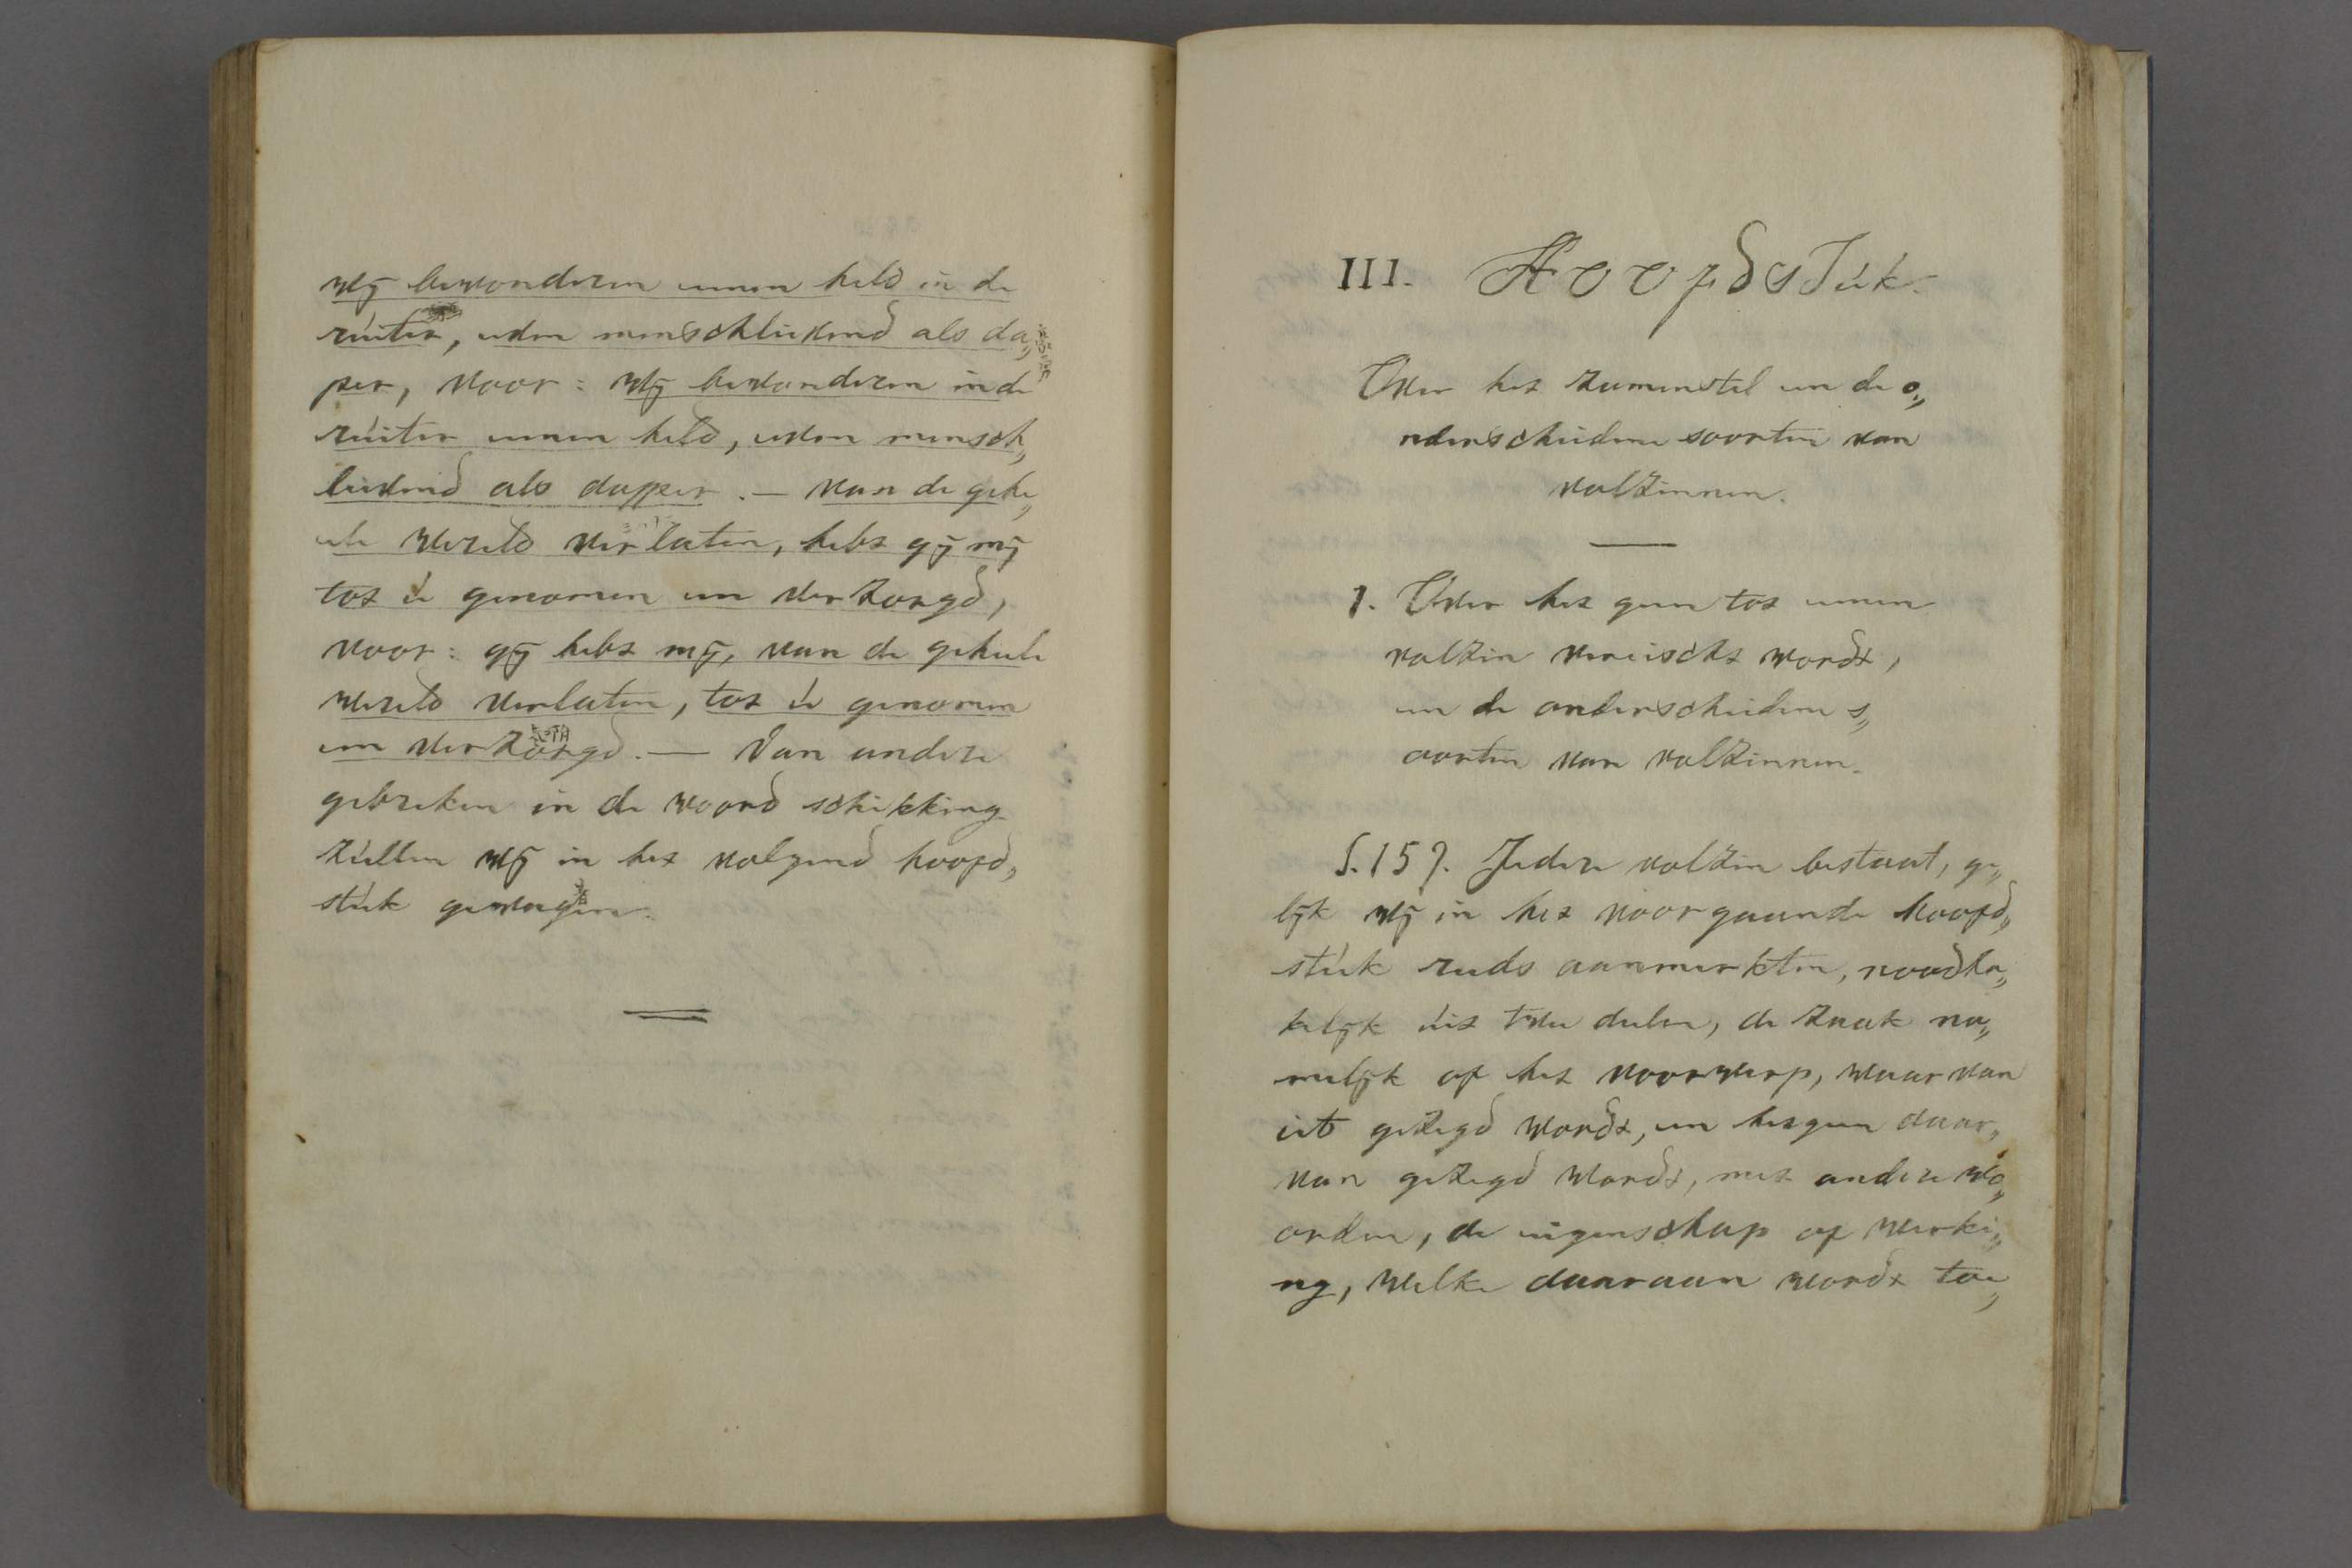 wij bewonderen eenen held in de
ruiter, even menschlievend als da„
per, voor: wij bewonderen in de
ruiter eenen held, even mensch„
lievend als dapper. — van de gehe„
ele wereld verlaten, hebt gij mij
tot u genomen en verzorgd,
voor: gij hebt mij, van de geheele
wereld verlaten, tot u genomen
en verzorgd. — Van andere
gebreken in de woord schikking
zullen wij in het volgend hoofd„
stuk gewagen.
III. Hoofdstuk.
Over het zamenstel en de o„
nderscheidene soorten van
volzinnen.
1. Over het geen tot eenen
volzin vereischt wordt,
en de onderscheidene s„
oorten van volzinnen.
§. 157. Iedere volzin bestaat, ge„
lijk wij in het voorgaande hoofd„
stuk reeds aanmerkten, noodza„
kelijk uit twee deelen, de zaak na„
melijk of het voorwerp, waar van
iets gezegd wordt, en hetgeen daar„
van gezegd wordt, met andere wo„
orden, de eigenschap of werki„
ng, welke daaraan wordt toe„